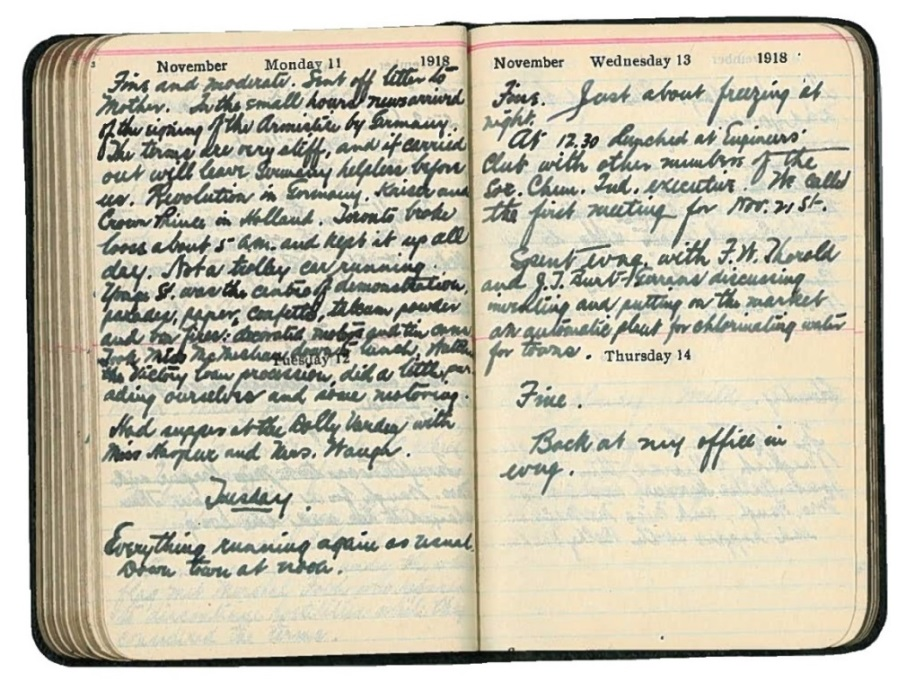 November Monday 11 1918
Fine and moderate. Sent off letter to
Mother. In the small hours news arrived
of the signing of the Armistice by Germany.
The terms are very stiff, and if carried
out will leave Germany helpless before
us. Revolution in Germany. Kaiser and
Crown Prince in Holland. Toronto broke
loose about 5 a.m. and kept it up all
day. Not a trolley car running.
Yonge St. was the centre of demonstration,
parades, paper, confetti, talcum powder
and bon fires: decorated motors and tin cans.
Took Miss McMichael down to lunch,
Tuesday 12
the Victory loan procession, did a little par
ading ourselves and some motoring.
Had supper at the Dolly Varden with
Miss and Mrs. Waugh.
Tuesday
Everything running again as usual.
Down town at noon.
November Wednesday 13 1918
Fine. Just about freezing at
night.
At 12.30 lunched at Engineers'
Club with other members of the
Soc. Chem. Ind. executive. We called
the first meeting for Nov. 21st.
Spent evng. with F.W. Thorold
and J.T. discussing
inventing and putting on the market
an automatic plant for chlorinating water
for towns.
Thursday 14
Fine.
Back at my office in
evng.